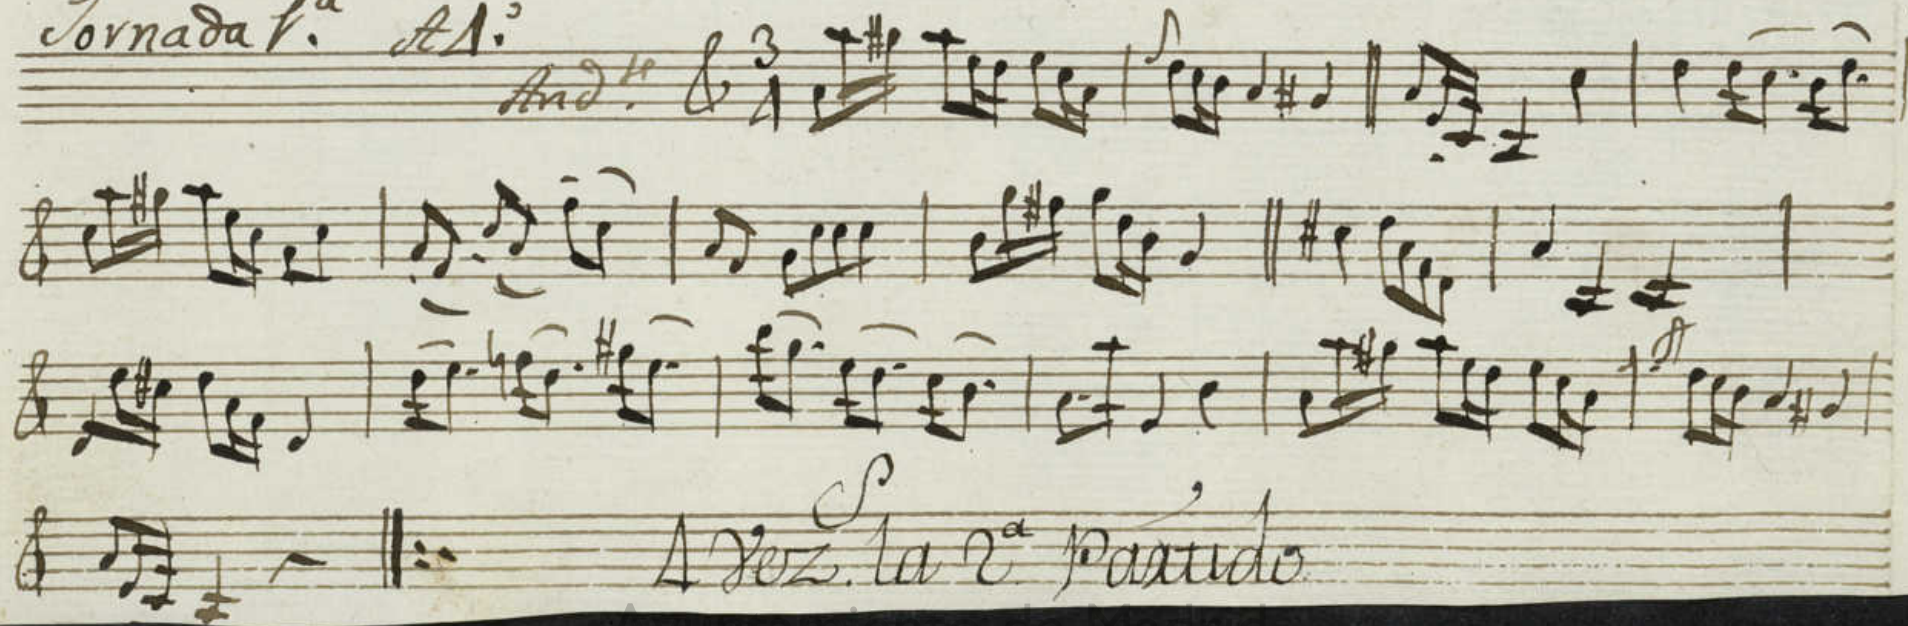 Jornada 1.ª A 4.º
And.te
3
4
4 Vez. la 2ª Partido